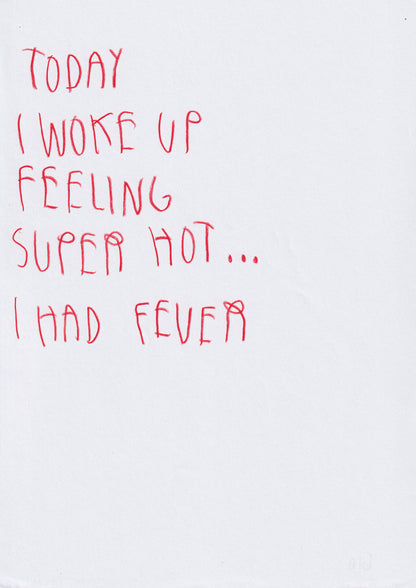 TODAY
I WOKE UP
FEELING
SUPER HOT...
I HAD FEVER